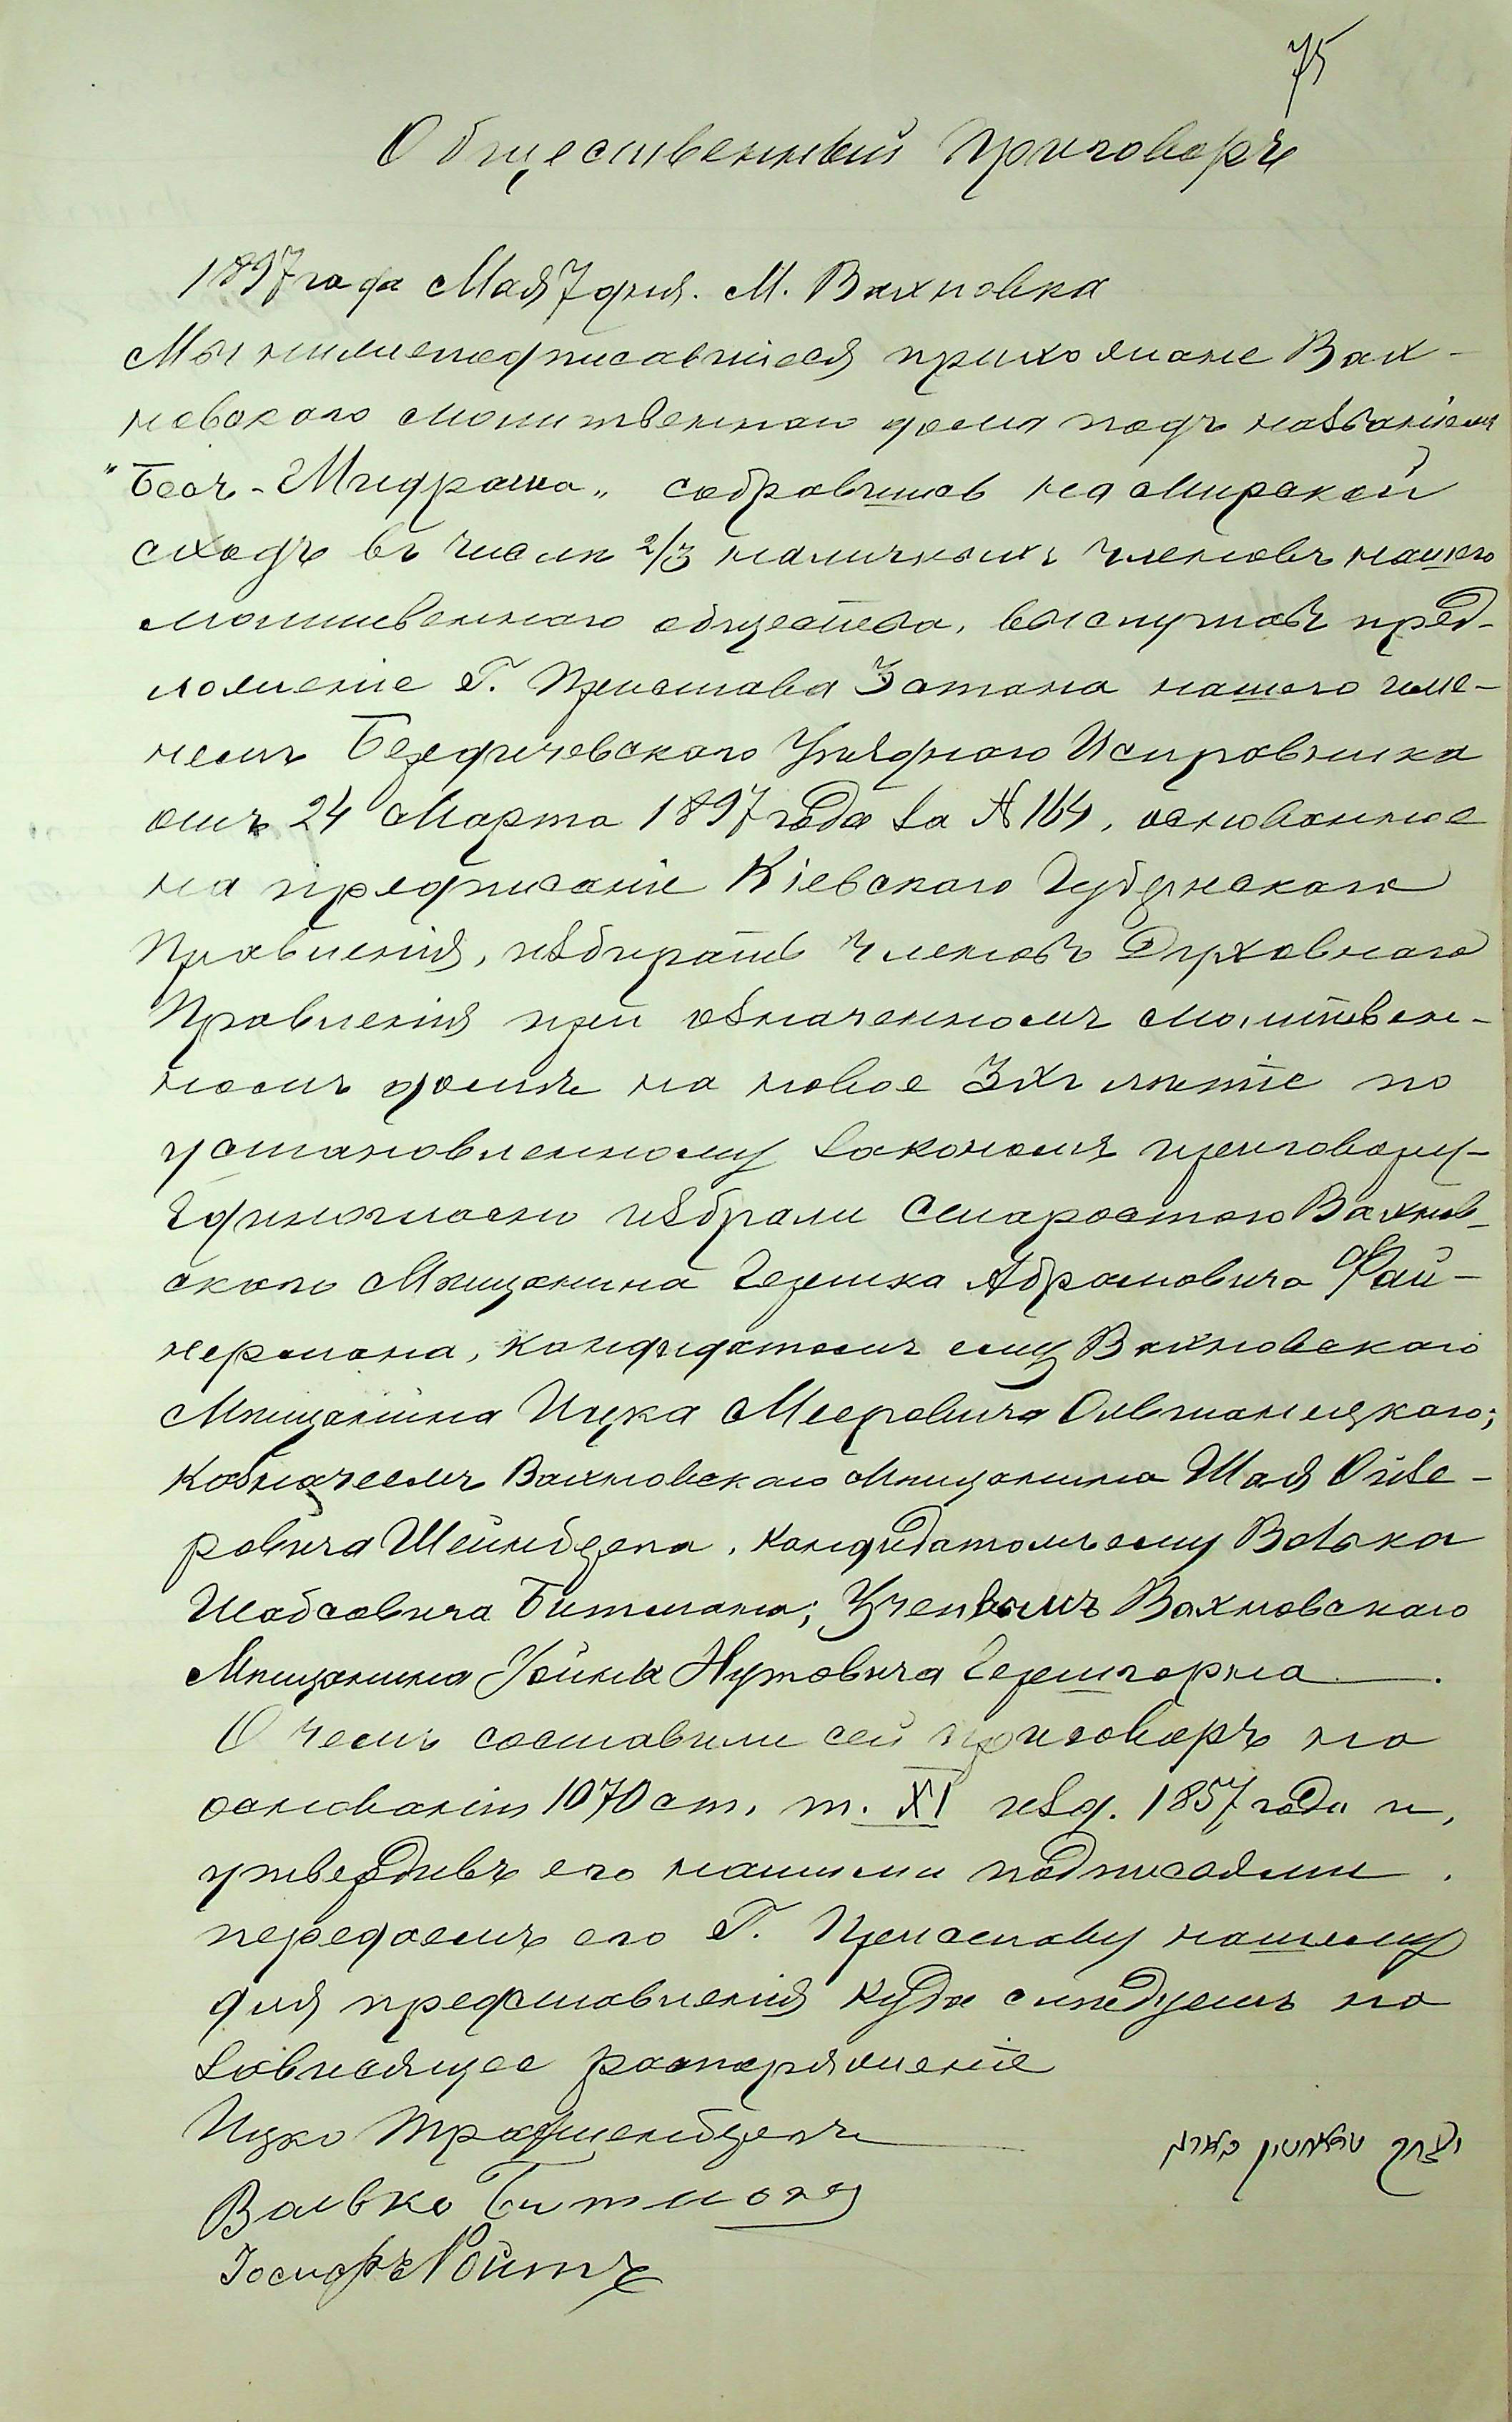 75
Общественный Приговоръ
1897 года Мая 7 дня. М. Вахновка
Мы нижеподписавшіеся прихожане Вах-
новского молитвенного дома подъ названіемъ
"Бесъ-Мидраша„ собравшись на мирской
сходъ въ числѣ 2/3 наличныхъ членовъ нашего
молитвенного общества, выслушавъ пред-
ложеніе Г. Пристава 3 стана нашего
Бердичевского Уѣздного Исправника
отъ 24 Марта 1897 года за № 164, основанное
на предписаніе Кіевского Губернского
Правленія, избирать членовъ Духовного
Правленія при означенномъ молитвен-
номъ домѣ на новое 3хъ лѣтіе по
установленному закономъ приговору-
Единогласно избрали Старостою Вахнов-
ского Мѣщанина Гершка Абрамовича Фай-
нермана, кандидатомъ ему Вахновского
Мѣщанина Ицка Мееровича Ольшанецкого;
Казначеемъ Вахновского Мѣщанина Шая Ойзе-
ровича Шейнберга, Кандидатомъ ему Волька
Шабсовича Битмана; Ученымъ Вахновского
Мѣщанина Нутовича Гершгорна.
О чемъ составили сей приговоръ на
основаніи 1070 ст. т. XI изд. 1857 года и,
утвердивъ его нашими подписями.
передаемъ его Г. Приставу нашему
для представленія куда слѣдуетъ на
зависящее распоряженіе
Ицко Трахтенбергъ
Волько Битманъ
Іосифъ Ройтъ
יצחק טראכטין בארג